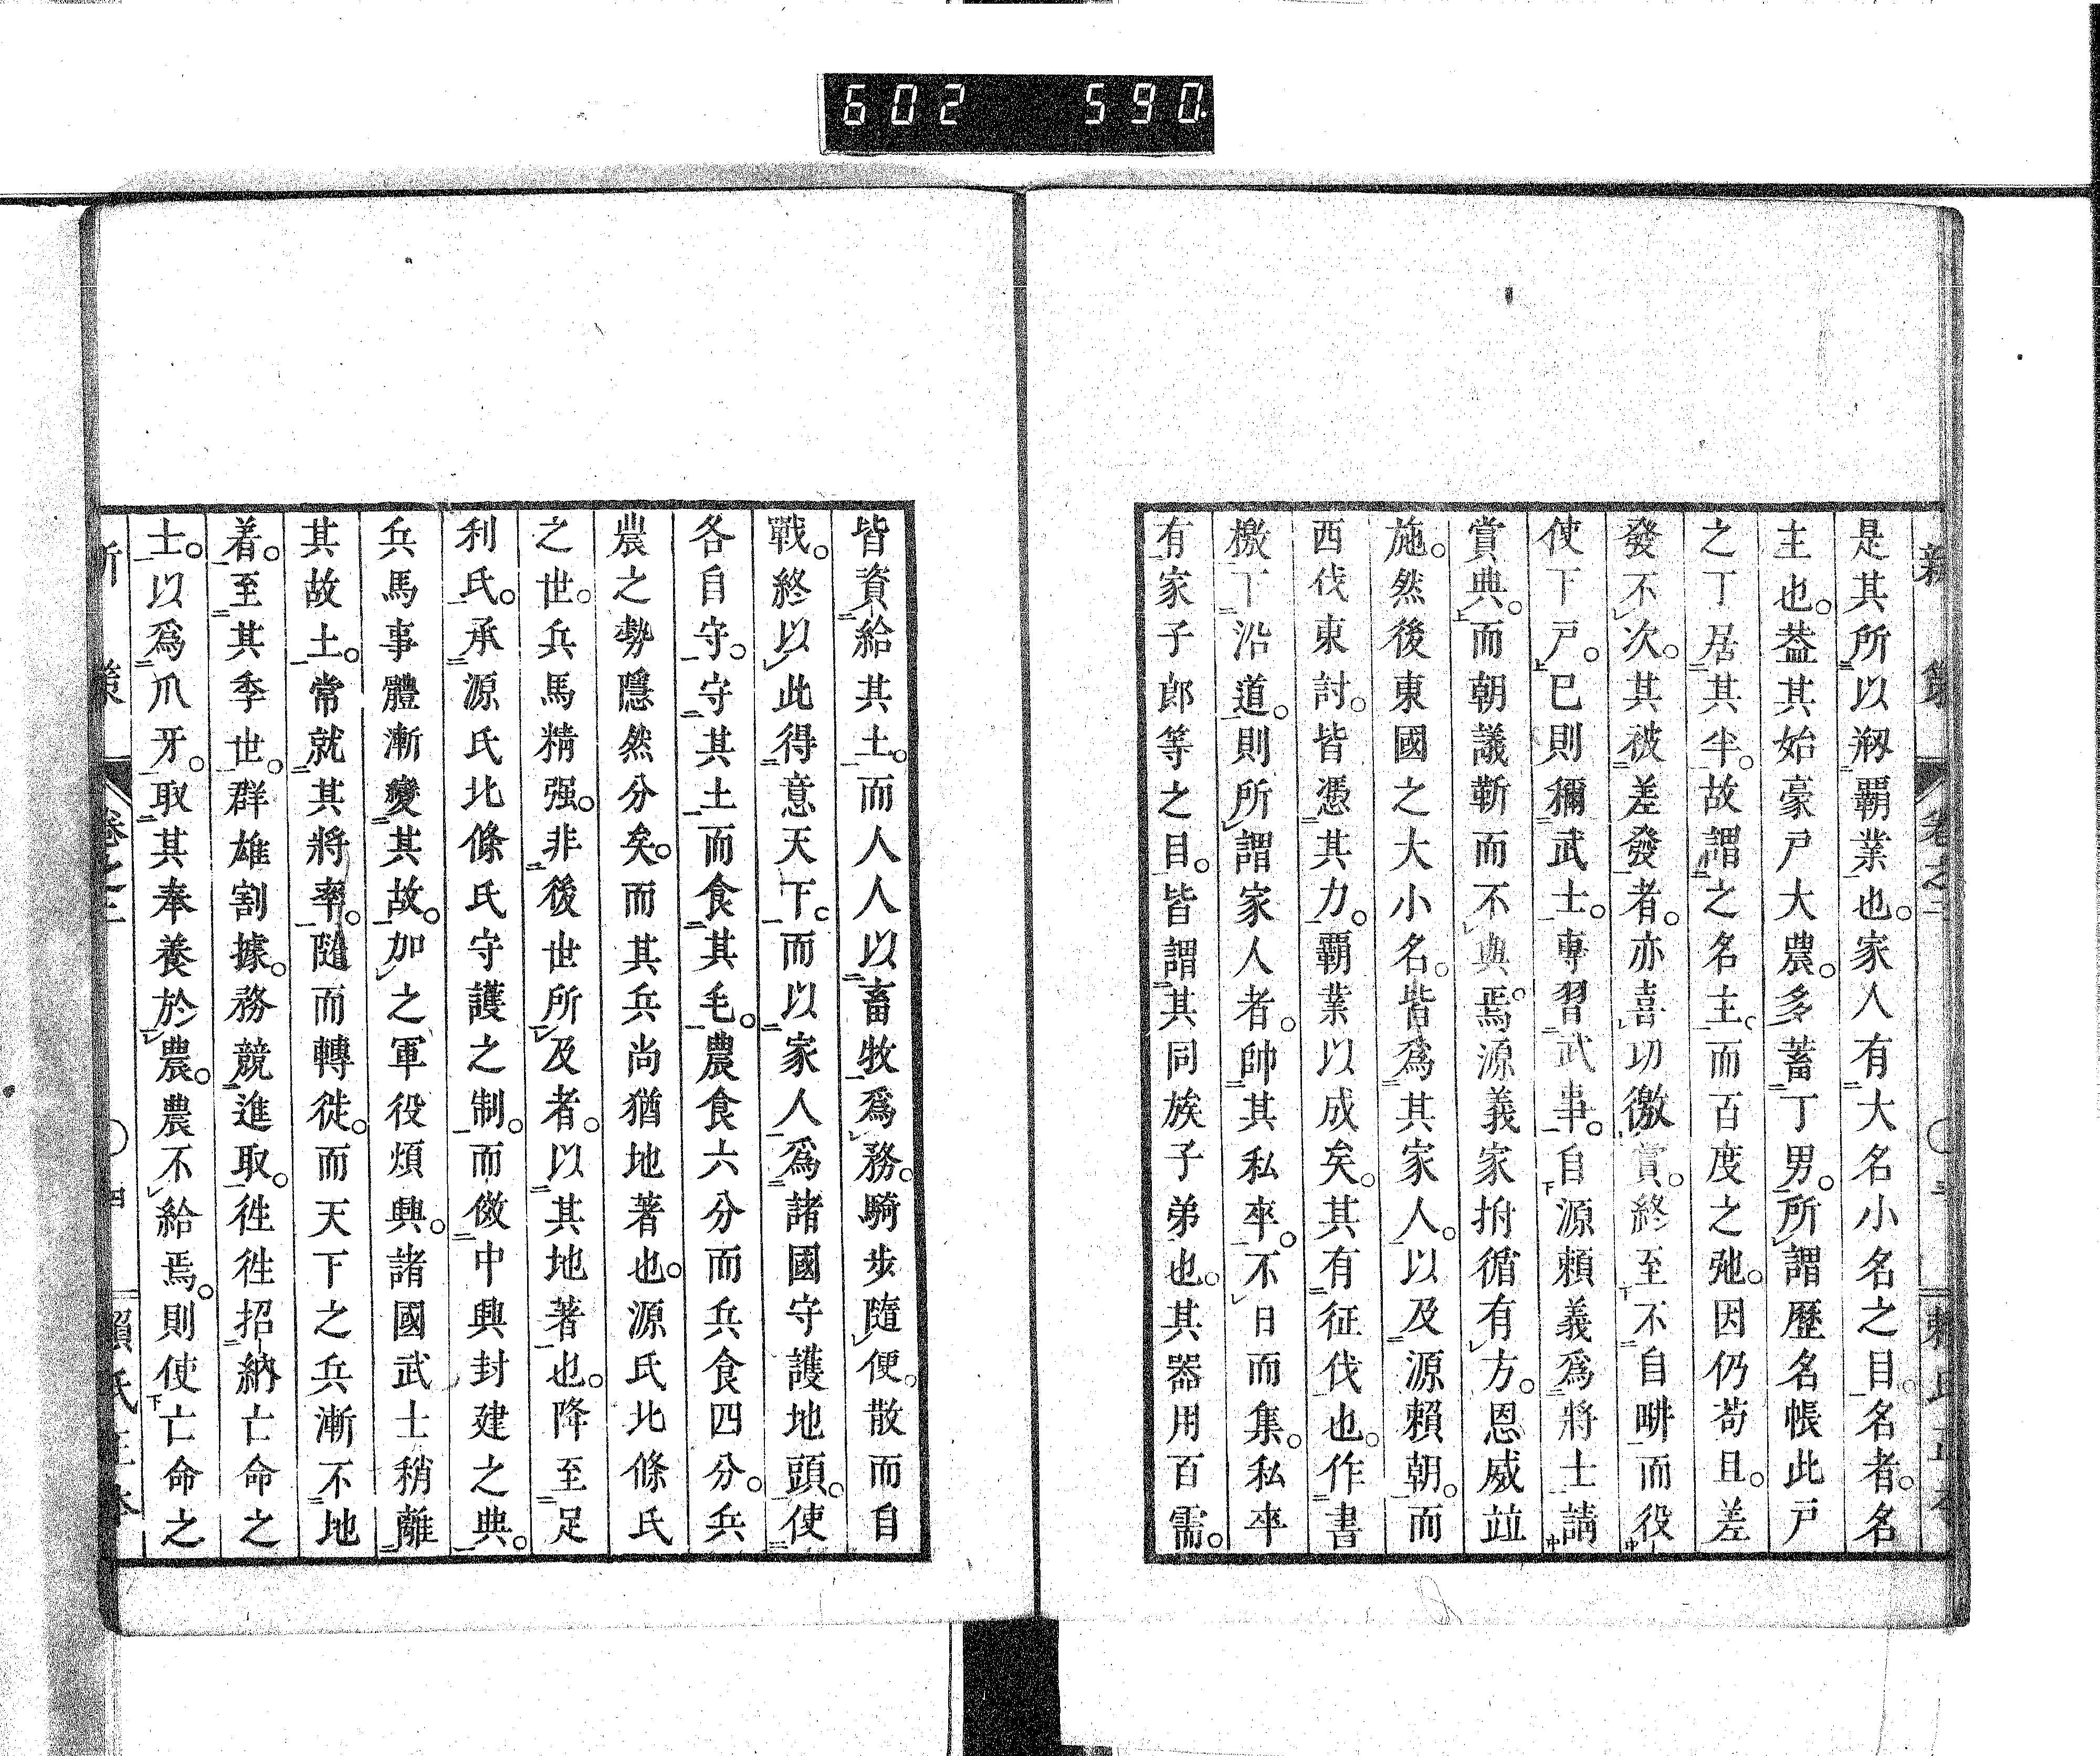 602 590
是其所以剏覇業也。家人有大名小名之目。名者。名
主也。葢其始豪戸大農。多蓄丁男。所謂歷名帳此戸
之丁居其半。故謂之名主。而百度之弛。因仍苟且。差
發不次。其被差發者。亦喜切徼賞。終至不自畊而役
使下戸。已則獮武士。專習武事。自源賴義爲將士請
賞典。而朝議靳而不典焉。源義家拊循有方。恩威竝
施。然後東國之大小名。皆爲其家人。以及源賴朝。而
西伐東討。皆憑其力。覇業以成矣。其有征伐也。作書
檄下沿道。則所謂家人者。帥其私卒。不日而集。私卒
有家子郎等之目。皆謂其同族子弟也。其器用百需。
皆資給其土。而人人以畜牧爲務。騎步隨便。散而自
戰。終以此得意天下。而以家人爲諸國守護地頭。使
各自守。守其土而食其毛。農食六分而兵食四分。兵
農之勢隱然分矣。而其兵尚猶地著也。源氏北條氏
之世。兵馬精强。非後世所及者。以其地著也。降至足
利氏。承源氏北條氏守護之制。而倣中興封建之典。
兵馬事體漸變其故。加之軍役煩興。諸國武士稍離
其故土。常就其將率。隨而轉徙。而天下之兵漸不地
着。至其季世。群雄割據。務競進取。徃徃招納亡命之
士。以爲爪牙。取其奉養於農。農不給焉。則使亡命之